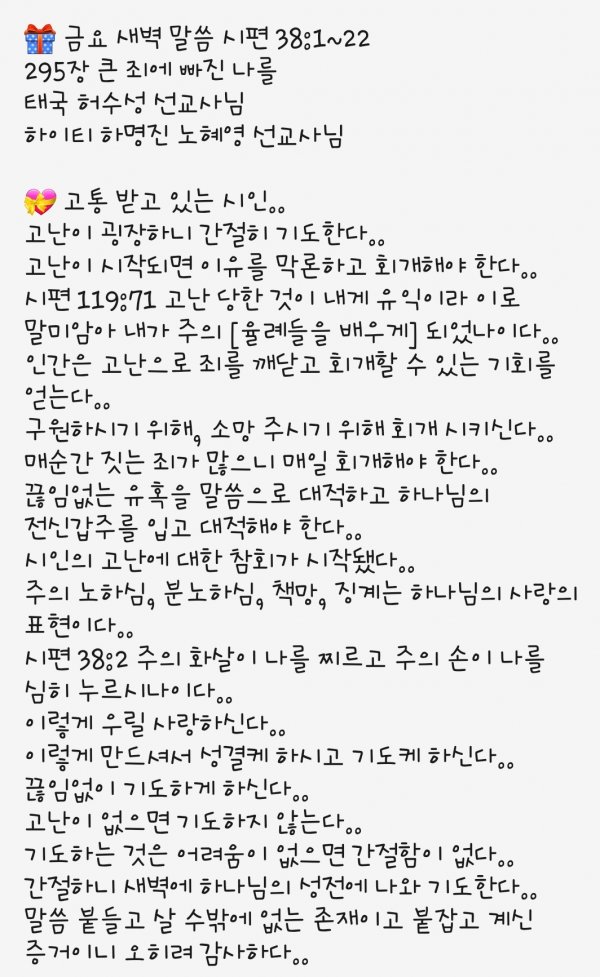 🎁 금요 새벽 말씀 시편 38:1~22
295장 큰 죄에 빠진 나를
태국 허수성 선교사님
하이티 하명진 노혜영 선교사님
💝 고통 받고 있는 시인..
고난이 굉장하니 간절히 기도한다..
고난이 시작되면 이유를 막론하고 회개해야 한다..
시편 119:71 고난 당한 것이 내게 유익이라 이로
말미암아 내가 주의 [율례들을 배우게] 되었나이다..
인간은 고난으로 죄를 깨닫고 회개할 수 있는 기회를
얻는다..
구원하시기 위해, 소망 주시기 위해 회개 시키신다..
매순간 짓는 죄가 많으니 매일 회개해야 한다..
끊임없는 유혹을 말씀으로 대적하고 하나님의
전신갑주를 입고 대적해야 한다..
시인의 고난에 대한 참회가 시작됐다..
주의 노하심, 분노하심, 책망, 징계는 하나님의 사랑의
표현이다..
시편 38:2 주의 화살이 나를 찌르고 주의 손이 나를
심히 누르시나이다..
이렇게 우릴 사랑하신다..
이렇게 만드셔서 성결케 하시고 기도케 하신다..
끊임없이 기도하게 하신다..
고난이 없으면 기도하지 않는다..
기도하는 것은 어려움이 없으면 간절함이 없다..
간절하니 새벽에 하나님의 성전에 나와 기도한다..
말씀 붙들고 살 수밖에 없는 존재이고 붙잡고 계신
증거이니 오히려 감사하다..